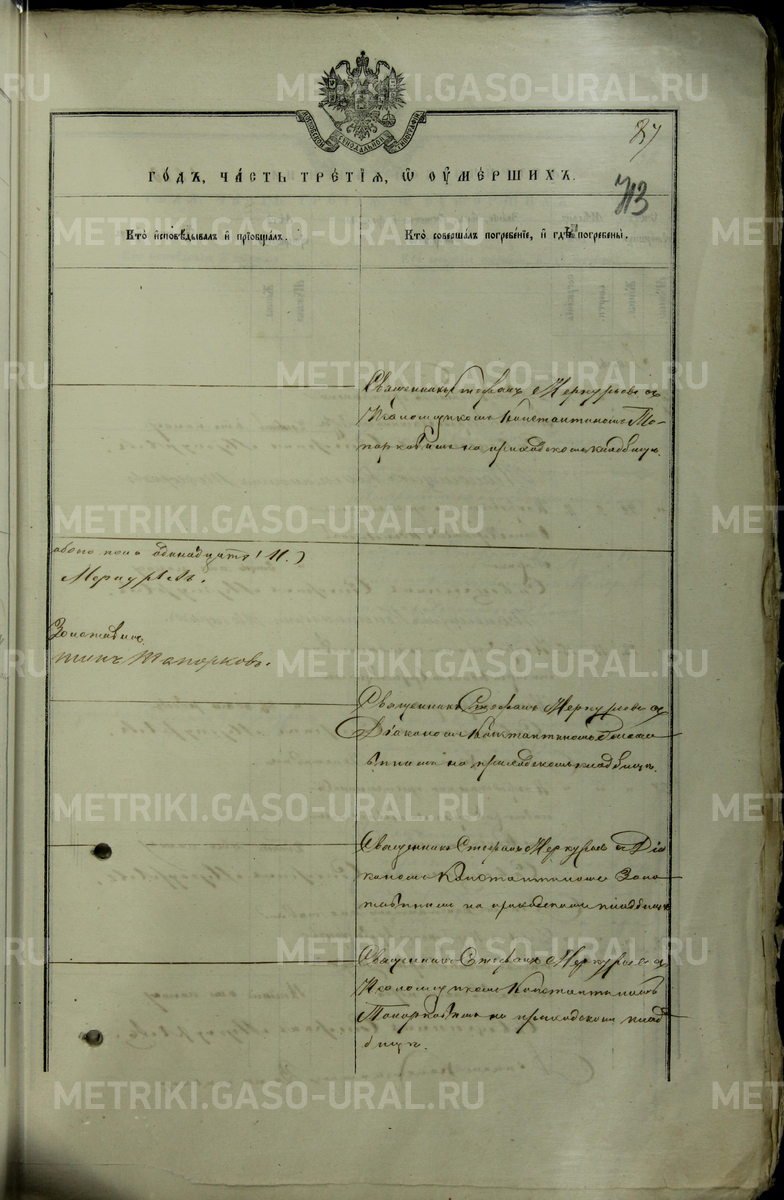 МОСКОВСКОЙ СѴНОДАЛЬНОЙ ТИПОГРАФІИ
87
713
ГО́ДЪ, ЧА́СТЬ ТРЕ́ТІѦ, Ѿ ОУ҆МЕ́РШИХЪ.
КТО̀ И҆СПОВѢ́ДЫВАЛЪ И҆ ПРІѠБЩА́ЛЪ.
КТО̀ СОВЕРША́ЛЪ ПОГРЕБЕ́НІЕ, И҆ ГДѢ̀ ПОГРЕБЕНЫ̀.
Священникъ Стефанъ Меркурьевъ съ
Псаломщикомъ Константиномъ То-
порковымъ на приходскомъ кладбищѣ.
обоего пола одинадцать (11.)
Меркурьевъ.
Золотавинъ.
тинъ Топорковъ.
Священникъ Стефанъ Меркурьевъ съ
Діакономъ Константиномъ Золота
винымъ на приходскомъ кладбищѣ.
Священникъ Стефанъ Меркурьевъ съ Діа
кономъ Константиномъ Золо
тавинымъ на приходскомъ кладбищѣ
Священникъ Стефанъ Меркурьевъ съ
Псаломщикомъ Константиномъ
Топорковымъ на приходскомъ клад
бищѣ.
METRIKI.GASO-URAL.RU